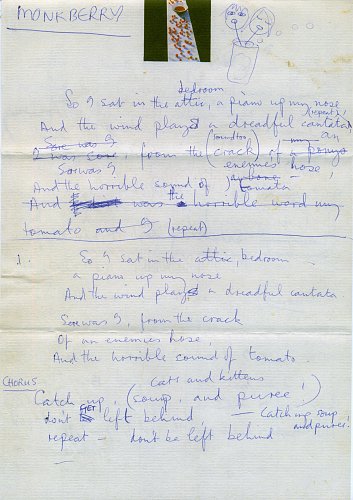 MONKBERRY
bedroom
So I sat in the attic, a piano up my nose
(repeat)
And the wind played a dreadful cantata
Sore was I
I was sore, from the (crack) of a pony
(sound too) my an
Sore was I enemies hose,
And the horrible sound of tomato
And was the horrible word my
tomato and I (repeat)
1. So I sat in the attic bedroom
a piano up my nose
And the wind played a dreadful cantata
Sore was I, from the crack
Of an enemies hose,
And the horrible sound of tomato.
CHORUS
Cats and kittens
Catch up, (soup, and puree,)
don't GET left behind — Catching soup
and puree!
repeat — don't be left behind